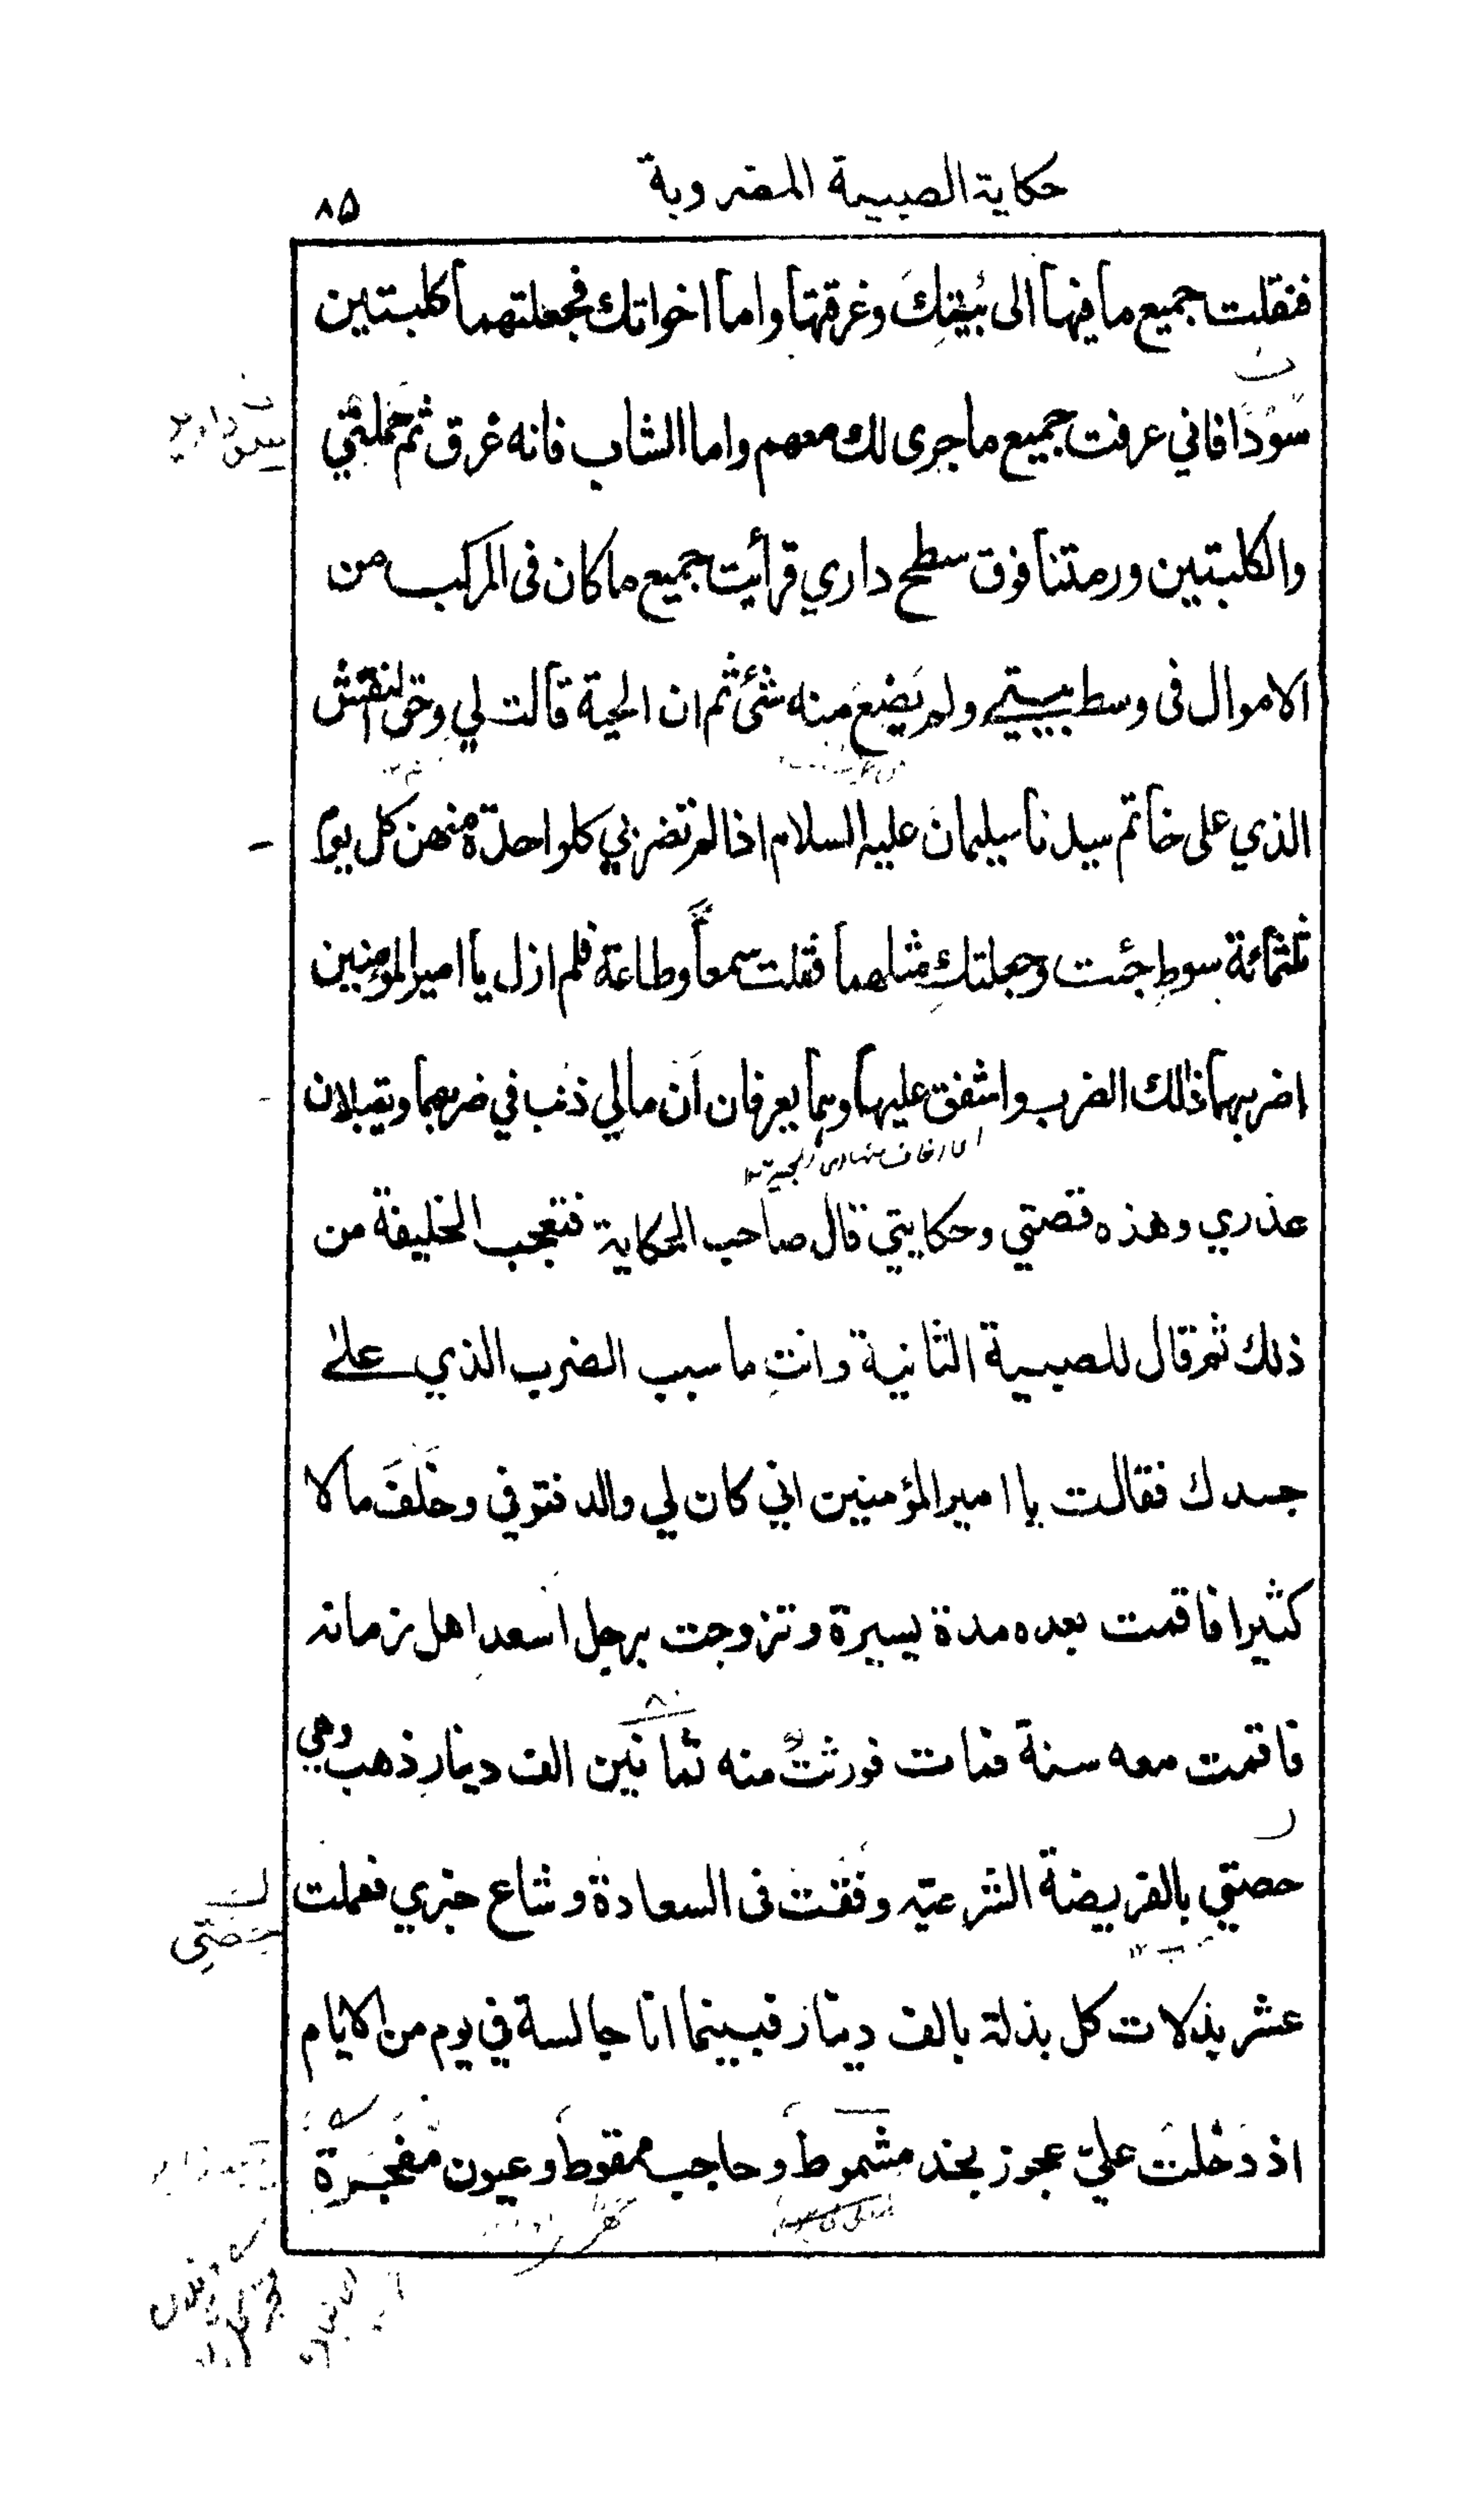 حكاية الصبية المضروبة
٨٥
فنقلت جميع ما فيها الى بيتك وغرقتها واما اخواتك فجعلتهما كلبتين
سودا فاني عرفت جميع ماجرى لك معهم واما الشاب فانه غرق ثم حملتني
والكلبتين ورمتنا فوق سطح داري فرأيت جميع ما كان فى المركب من
الاموال فى وسط بيتي ولم يضع منه شئ ثم ان الحية قالت لي وحق النقش
الذي على خاتم سيدنا سليمان عليه السلام اذا لم تضربي كلواحدة منهن كل يوم
ثلثمائة سوط جئت وجعلتك مثلهما فقلت سمعاً وطاعة فلم ازل يا امير المؤمنين
اضربهما ذلك الضرب واشفق عليهما وهما يعرفان ان مالي ذنب في ضربهما ويقبلان
عذري وهذه قصتي وحكايتي قال صاحب الحكاية فتعجب الخليفة من
ذلك ثم قال للصبية الثانية وانتِ ما سبب الضرب الذي على
جسدك فقالت يا امير المؤمنين اني كان لي والد فتوفي وخلف مالا
كثيرا فاقمت بعده مدة يسيرة وتزوجت برجل اسعد اهل زمانه
فاقمت معه سنة فمات فورثتُ منه ثمانين الف دينار ذهب وهي
حصتي بالفريضة الشرعيه وفقت فى السعادة وشاع خبري فعملت
عشر بذلات كل بذلة بالف دينار فبينما انا جالسة في يوم من الايام
اذ دخلت علي عجوز بخد مشموط وحاجب ممقوط وعيون مفجرة